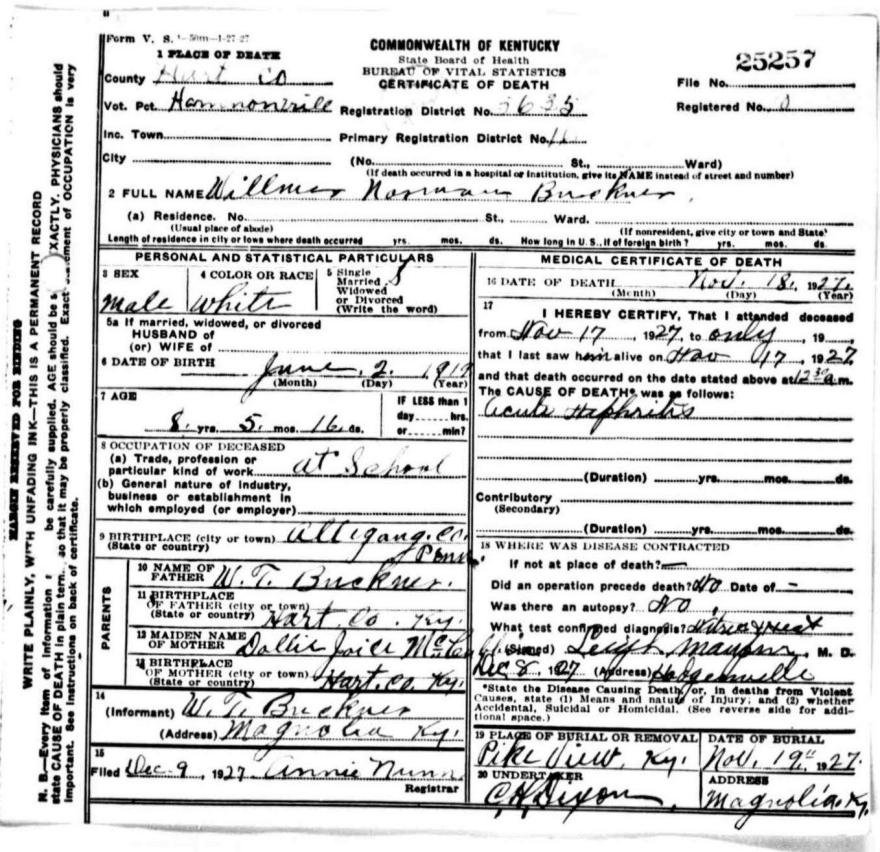 Form V. S. 1-50m-1-27-27
COMMONWEALTH OF KENTUCKY
State Board of Health
BUREAU OF VITAL STATISTICS
CERTIFICATE OF DEATH
25257
1 PLACE OF DEATH
County Hart Co
File No.
Vot. Pct. Hammonville
Registration District No. 3635
Registered No.
Inc. Town
Primary Registration District No.
City (No. St., Ward)
(If death occurred in a hospital or institution, give its NAME instead of street and number)
2 FULL NAME Willmer Norman Buckner
(a) Residence. No. St., Ward.
(Usual place of abode) (If nonresident, give city or town and State)
Length of residence in city or town where death occurred yrs. mos. ds. How long in U. S., if of foreign birth? yrs. mos. ds.
PERSONAL AND STATISTICAL PARTICULARS
3 SEX
Male
4 COLOR OR RACE
White
5 Single
Married S
Widowed
or Divorced
(Write the word)
5a If married, widowed, or divorced
HUSBAND of
(or) WIFE of
6 DATE OF BIRTH June 2, 1919
(Month) (Day) (Year)
7 AGE
8 yrs. 5 mos. 16 ds.
IF LESS than 1
day hrs.
or min?
8 OCCUPATION OF DECEASED
(a) Trade, profession or
particular kind of work At School
(b) General nature of industry,
business or establishment in
which employed (or employer)
9 BIRTHPLACE (city or town) Alligang. Co.
(State or country) Penn
PARENTS
10 NAME OF
FATHER W. T. Buckner.
11 BIRTHPLACE
OF FATHER (city or town)
(State or country) Hart. Co. Ky.
12 MAIDEN NAME
OF MOTHER Dollie Joice
13 BIRTHPLACE
OF MOTHER (city or town)
(State or country) Hart. Co. Ky.
14
(Informant) W. T. Buckner
(Address) Magnolia Ky.
15
Filed Dec. 9, 1927 Annie Nunn
Registrar
MEDICAL CERTIFICATE OF DEATH
16 DATE OF DEATH Nov. 18, 1927.
(Month) (Day) (Year)
17
I HEREBY CERTIFY, That I attended deceased
from Nov 17, 1927, to only, 19
that I last saw him alive on Nov 17, 1927
and that death occurred on the date stated above at 12 30 a.m.
The CAUSE OF DEATH* was as follows:
Acute Nephritis
(Duration) yrs. mos. ds.
Contributory
(Secondary)
(Duration) yrs. mos. ds.
18 WHERE WAS DISEASE CONTRACTED
If not at place of death? —
Did an operation precede death? No Date of –
Was there an autopsy? No
What test confirmed diagnosis?
(Signed) M. D.
Dec 8, 1927 (Address) Hodgenville
*State the Disease Causing Death, or, in deaths from Violent
Causes, state (1) Means and nature of Injury; and (2) whether
Accidental, Suicidal or Homicidal. (See reverse side for addi-
tional space.)
19 PLACE OF BURIAL OR REMOVAL
Pike View, Ky.
DATE OF BURIAL
Nov. 19", 1927.
20 UNDERTAKER
C. H. Dixon,
ADDRESS
Magnolia Ky.
MARGIN RESERVED FOR BINDING
WRITE PLAINLY, WITH UNFADING INK—THIS IS A PERMANENT RECORD
N. B.—Every item of information be carefully supplied. AGE should be EXACTLY. PHYSICIANS should
state CAUSE OF DEATH in plain so that it may be properly classified. Exact statement of OCCUPATION is very
important. See instructions on back of certificate.